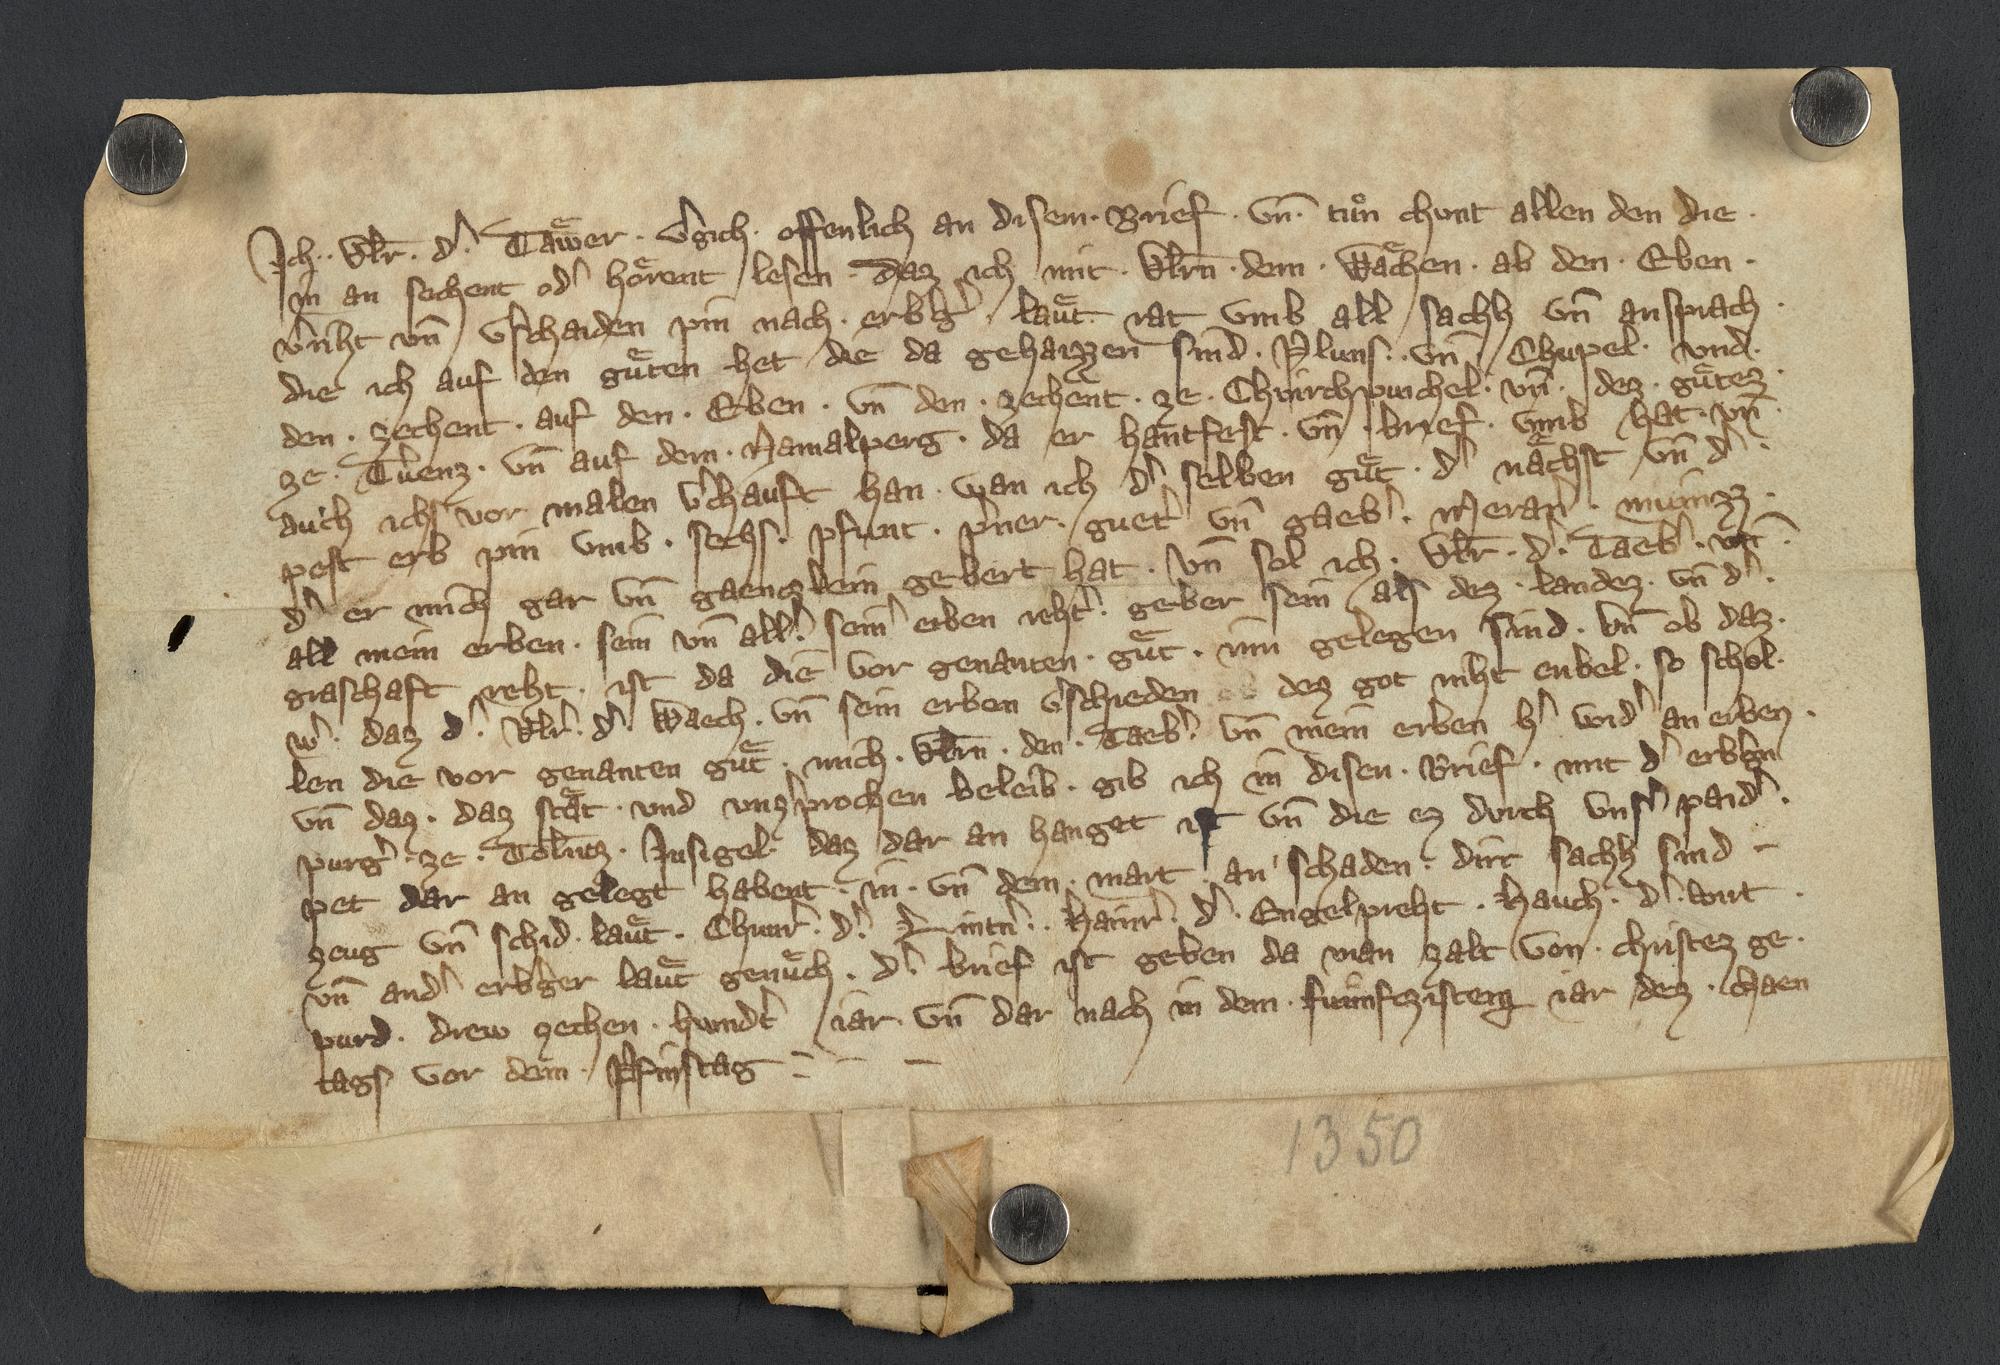 Ich · Vlr · d' · Taͤwer · v'gich · offenlich an disem · Brief · vn̄ · tuͦn chunt allen den die ·
in an sechent od' hoͤrent lesen · daz ich mit · Vlrn · dem · Waͤchen · ab den · Eben ·
v'riht vn̄ v'schaiden pin nach · erb'g' · laͤut · rat vmb all sachh vn̄ ansprach
die ich auf den guͤten het die da gehaizzen sind · Pluns · vn̄ · Chupel · vnd ·
den · zechent · auf den · Eben · vn̄ den · zechent · ze · Chuirchpuichel · vn̄ · dez · guͤtez
ze · Tuenz · vn̄ auf dem · Ramalperg · da er hantfest · vn̄ · brief · vmb hat · vn̄
auch ichs vor malen v'chauft han · wan ich d' selben guͤt · d' naͤchst vn̄ d' ·
pest erb pin vmb · sechs · pfunt · p'ner · guet' vn̄ gaeb' · Meran' · muinzz ·
d' er mich gar vn̄ gaenczlein gewert hat · vn̄ sol ich · Vlr · d' · Taeb' · vn̄ ·
all mein erben · sein vn̄ all' · sein' erben reht' · gewer sein als dez · landez · vn̄ d' ·
graschaft reht · ist da die vor genanten · guͤt · inn gelegen sind · vn̄ ob daz ·
w' · daz d' · Vlr · d' · Waech · vn̄ sein erben v'schieden dez got niht enbel · so schol ·
len die vor genanten guͤt · mich · Vlrn · den · Taeb' · vn̄ mein erben h' wid' an erben ·
vn̄ daz · daz staͤt · vnd vnz'prochen beleib · gib ich in disen · Brief · mit d' erb'gn
purg' · ze · Toͤlntz · Insigel · daz dar an hanget ist vn̄ die ez durch vns' paid' ·
pet dar an gelegt habent · in · vn̄ dem · mart · an schaden · dirr sachh sind -
zeug vn̄ schid · laͤut · Chunr · d' · Lintn' · Hainr' · d' · Engelpreht · Hauch · d' · wirt ·
vn̄ and' erb'ger laͤut genuͤch · d' brief ist geben da man zalt von · christez ge ·
purd · drew zechen · hundt' iar · vn̄ dar nach in dem · fuimfczistem iar dez · chaen
tags vor dem · Pfinstag
1350